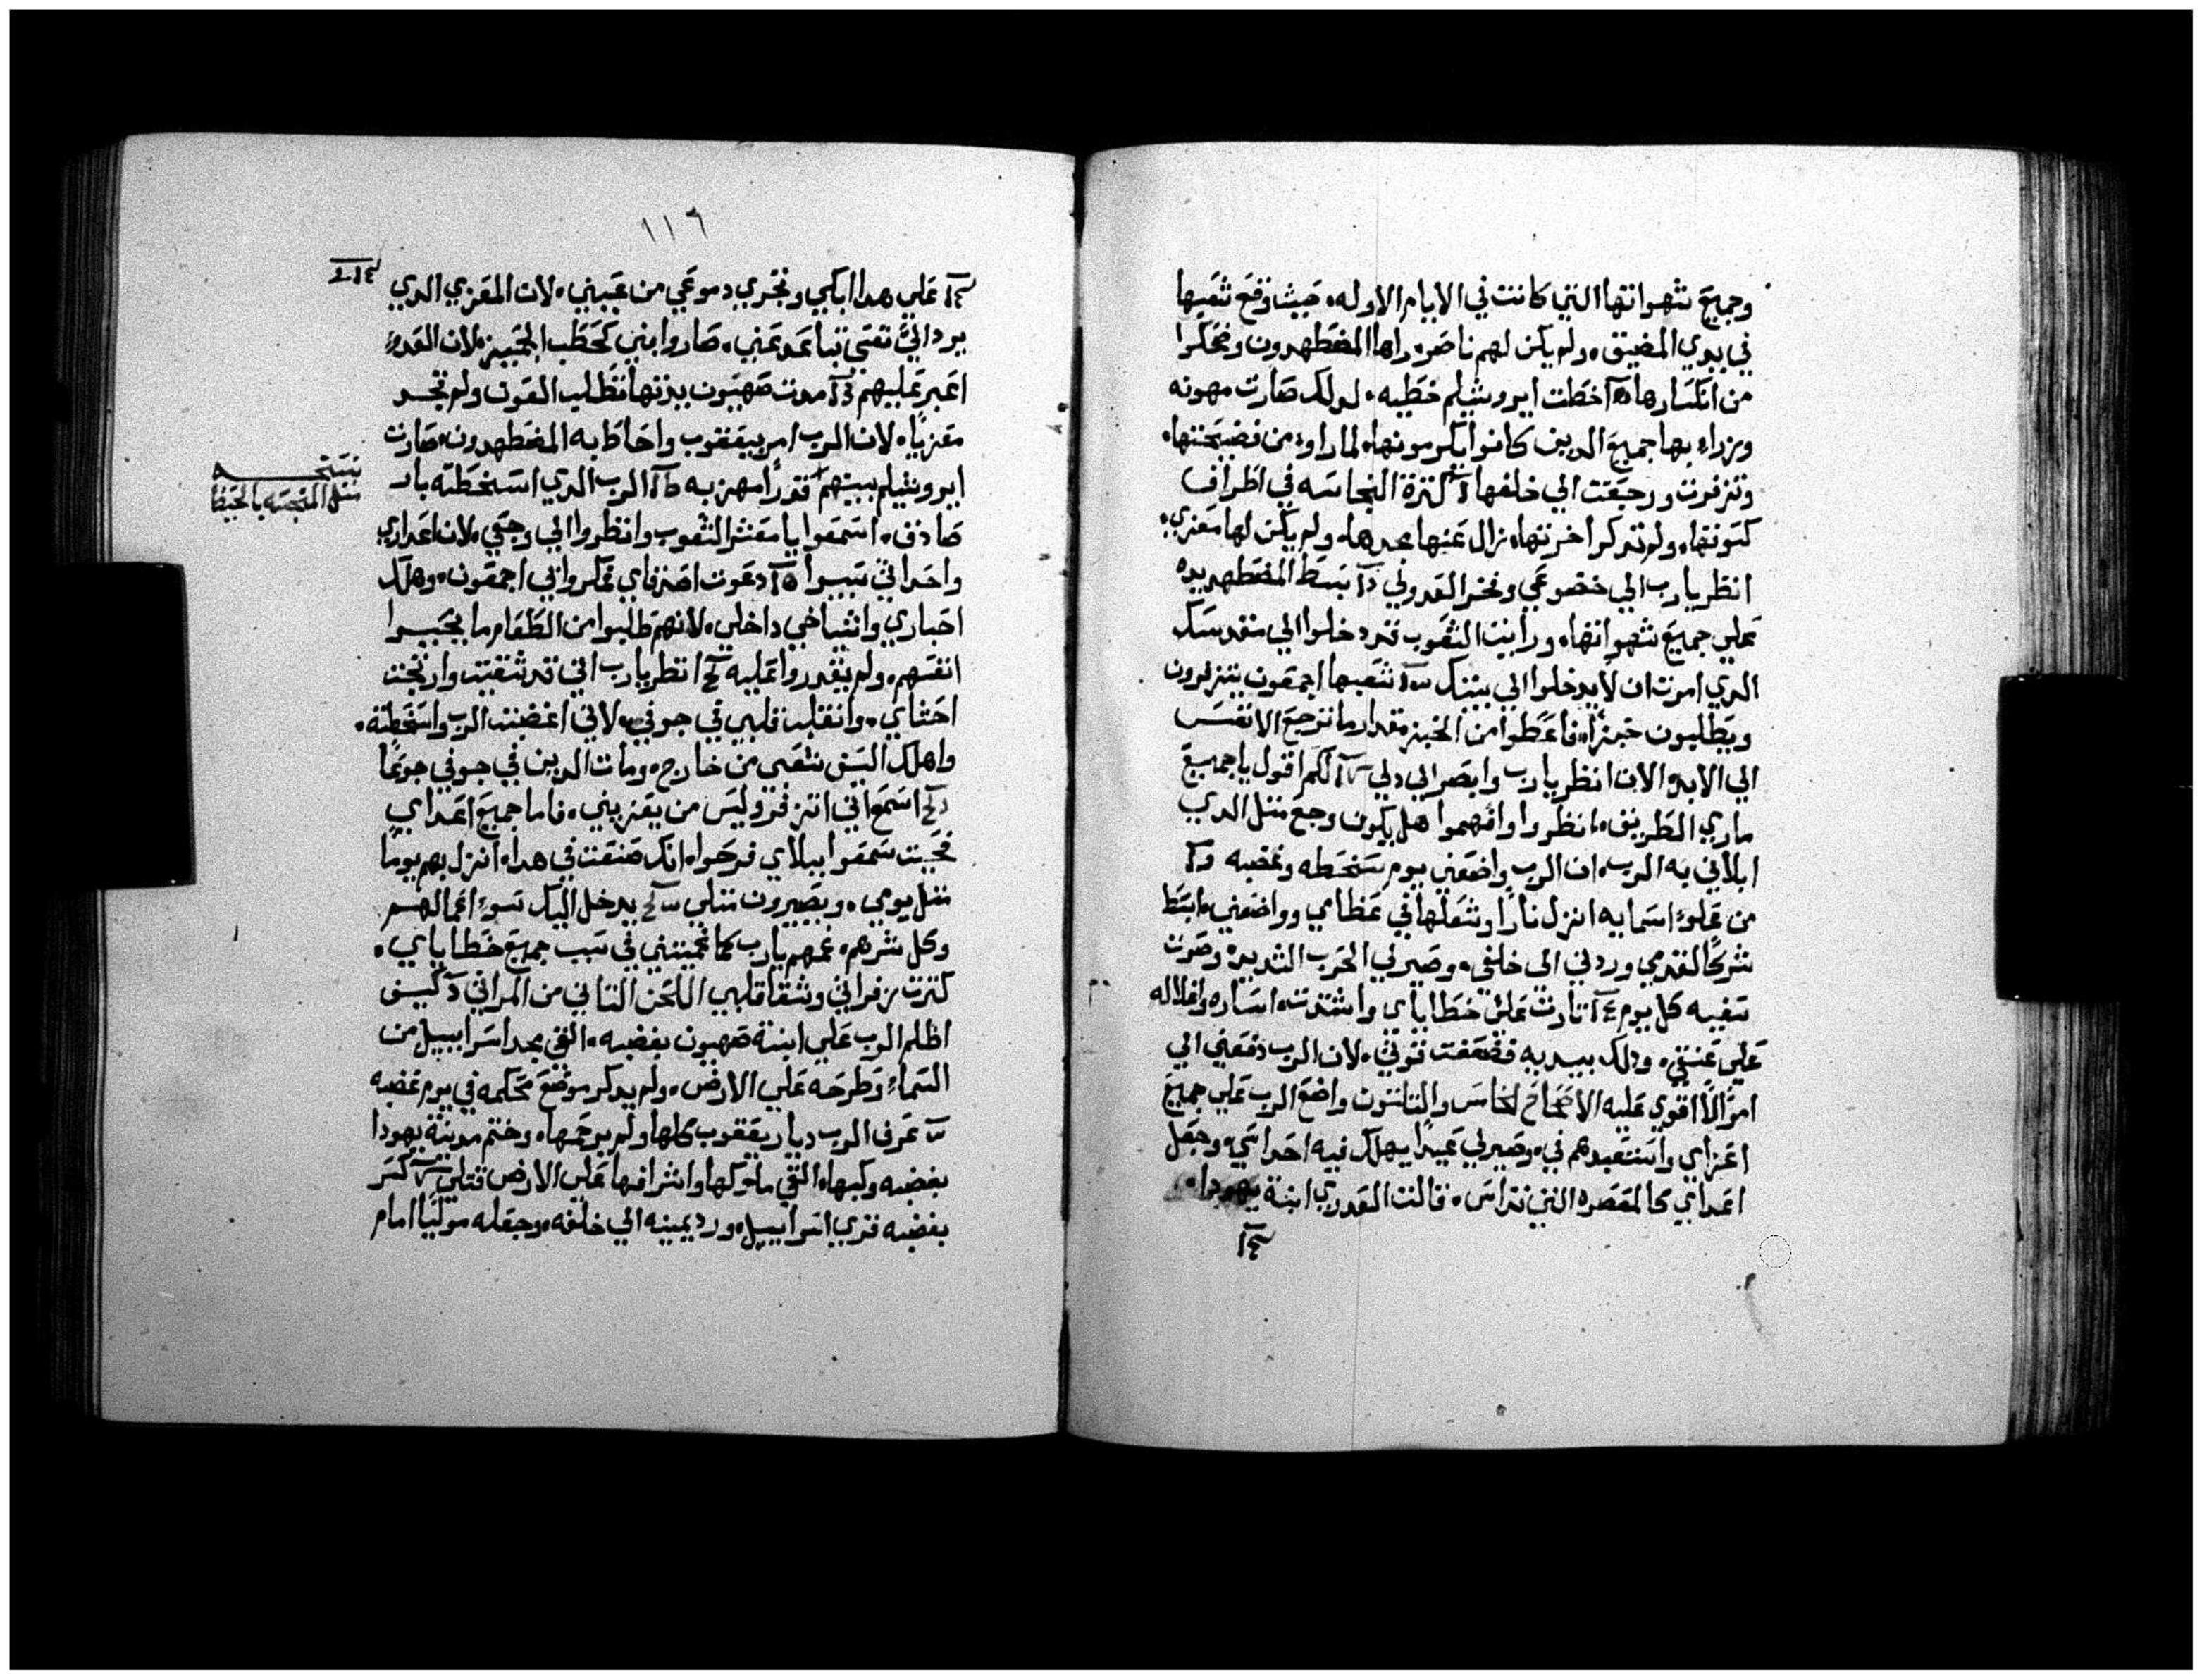 وجميع شهواتها التي كانت في الايام الاوله، حيث وقع شعبها
في يدي المضيق، ولم يكن لهم ناصر، راها المضطهدون وضحكوا
من انكسارها اخطت ايروشليم خطيه، لدلك صارت مهونه
وزراء بها جميع الدين كانوا يكرمونها، لما راوء من فضيحتها،
وتزفرت ورجعت الي خلفها كترة النجاسه في اطراف
كتونتها، ولم تدكر اخرتها، نزال عنها مجدها، ولم يكن لها معزي،
انظر يارب الي خضوعي وفخر العدو لي بسط المضطهد يده
علي جميع شهواتها، ورايت الشعوب قد دخلوا الي مقدسك
الدي امرت ان لا يدخلوا الي بيتك شعبها اجمعون يتزفرون
ويطلبون خبزا، فاعطوا من الخبز مقدار ما ترجع الانفس
الي الابد الان انظر يارب وابصر الي دلي لكم اقول يا جميع
ماري الطريق، انظروا وافهموا هل يكون وجع متل الدي
ابلاني به الرب، ان الرب واضعني يوم سخطه وغضبه
من علوء اسمايه انزل نارا وشعلها في عظامي وواضعني، ابسط
شركا لقدمي وردني الي خلفي، وصيرني الحرب الشديد وصرت
تعبه كل يوم تارت علي خطاياي واشتدت، اساره واغلاله
علي عنقي، ودلك بيديه فضعفت قوتي، لان الرب دفعني الي
امر لا اقوي عليه الاصحاح الخامس والتلتون واضع الرب علي جميع
اعزاي واستعبدهم في، وصير لي عيدا يهلك فيه احداتي، وجعل
اعداي كالمعصره التي تداس، قالت العدري ابنة يهودا،
١١٦
علي هدا ابكي وتجري دموعي من عيني، لان المعزي الدي
يرد الي نفسي تباعد عني، صاروا بني كحطب الجبير، لان العدوء
اعبر عليهم مدت صهيون يدتها تطلب القوت ولم تجد
معزيا، لان الرب امر بيعقوب واحاط به المضطهدون، صارت
ايروشليم بينهم الرب الدي اسخطته بار
صادق، اسمعوا يا معشر الشعوب وانظروا الي وجعي، لان اعداري
واحداتي سبيوا دعوت اصدقاي مكروا بي اجمعون، وهلك
احباري واشياخي داخلي، لانهم طلبوا من الطعام ما يحييوا
انفسهم، ولم يقدروا عليه انظر يارب اني قد شقيت وارتجت
احشاي، وانقلب قلبي في جوفي، لاني اغضبت الرب واسخطته،
واهلك السيف شعبي من خارج، ومات الدين في جوفي جوعا
اسمع اني اتزفر وليس من يعزيني، فاما جميع اعداي
فحيت سمعوا ببلاي فرحوا، انك صنعت في هدا، انزل بهم يوما
متل يومي، ويصيرون متلي يدخل اليك سوء اعمالهم
وكل شرهم، عمهم يارب كما عميتني في سبب جميع خطاياي،
كترت زفراتي وشقا قلبي اللحن التاني من المراتي كيف
اظلم الرب علي ابنة صهيون بغضبه، القي مجد اسراييل من
السماء وطرحه علي الارض، ولم يدكر موضع محكمه في يوم غضبه
عرف الرب ديار يعقوب كلها ولم يرحمها، وختم مدينة يهودا
بغضبه وكبها، القي ملوكها واشرافها علي الارض قتلي كسر
بغضبه قري اسراييل، ورد يمينه الي خلفه، وجعله موليا امام